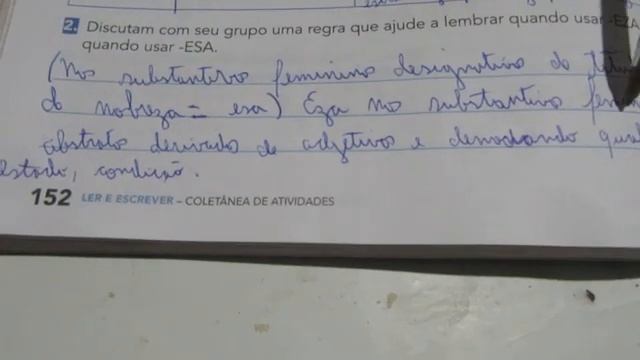 2. Discutam com seu grupo uma regra que ajude a lembrar quando usar -EZA
quando usar -ESA.
(Nos substantivos feminino designativos do
de nobreza = esa) Eza nos substantivos
abstratos derivados de adjetivos e
estado, condição.
152 LER E ESCREVER – COLETÂNEA DE ATIVIDADES